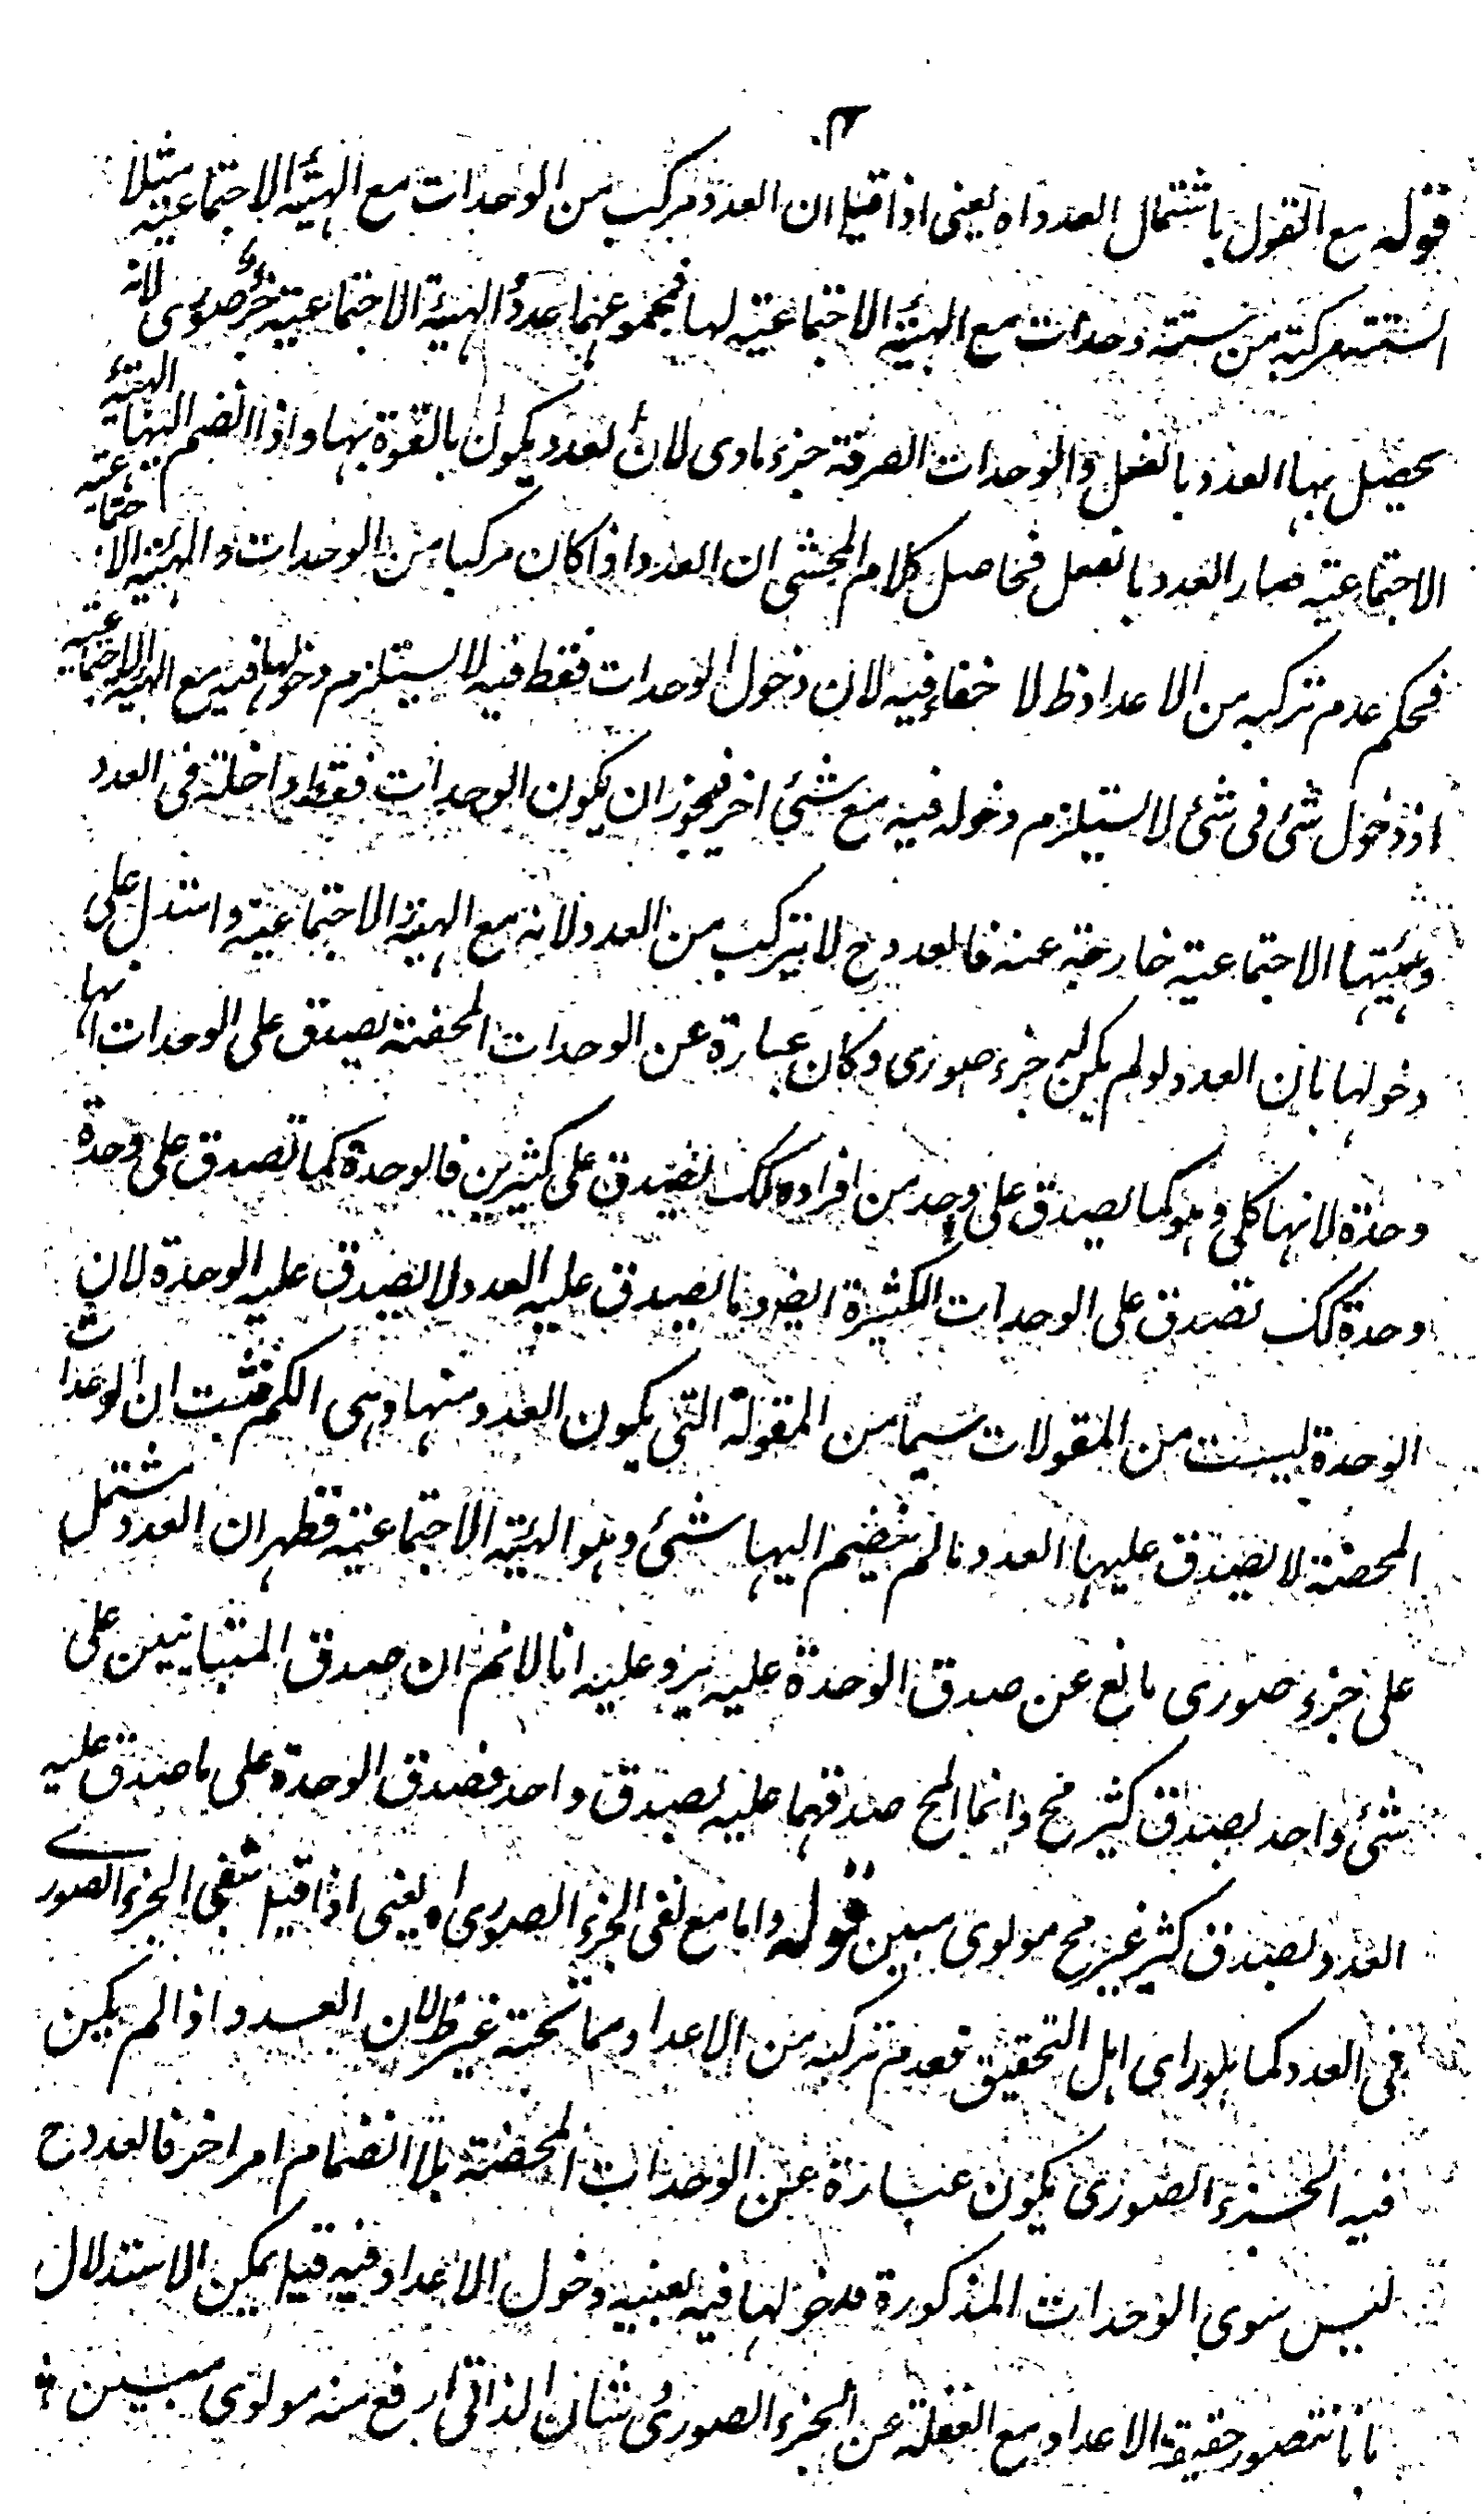 ٣
قوله مع القول باشتمال العدد اه يعنى اذا قيل ان العدد مركب من الوحدات مع الهيئة الاجتماعية مثلا
الستة مركبة من ستة وحدات مع الهيئة الاجتماعية لها فمجموعهما عدد الهيئة الاجتماعية جزء صورى لانه
يحصل بها العدد بالفعل والوحدات الصرفة جزء مادى لان العدد يكون بالقوة بها واذا انضم اليها الهيئة
الاجتماعية صار العدد بالفعل فحاصل كلام المحشى ان العدد اذا كان مركبا من الوحدات والهيئة الاجتماعية
فحكم عدم تركبه من الاعداد ظ لا خفاء فيه لان دخول الوحدات فقط فيه لا يستلزم دخولها فيه مع الهيئة الاجتماعية
اذ دخول شئ فى شئ لا يستلزم دخوله فيه مع شئ اخر فيجوز ان يكون الوحدات فقط داخلة فى العدد
وهيئتها الاجتماعية خارجة عنه فالعدد ح لا يتركب من العدد لانه مع الهيئة الاجتماعية واستدل على
دخولها بان العدد لو لم يكن له جزء صورى وكان عبارة عن الوحدات المحضة يصدق على الوحدات انها
وحدة لانها كلى وهو كما يصدق على واحد من افراده كك يصدق على كثيرين فالوحدة كما تصدق على وحدة
وحدة كك تصدق على الوحدات الكثيرة ايض وما يصدق عليه العدد لا يصدق عليه الوحدة لان
الوحدة ليست من المقولات سيما من المقولة التى يكون العدد منها وهى الكم فثبت ان الوحدات
المحضة لا يصدق عليها العدد ما لم ينضم اليها شئ وهو الهيئة الاجتماعية فظهر ان العدد مشتمل
على جزء صورى مانع عن صدق الوحدة عليه يرد عليه انا لا نم ان صدق المتباينين على
شئ واحد بصدق كثير مح وانما المح صدقهما عليه بصدق واحد فصدق الوحدة على ما صدق عليه
العدد بصدق كثير غير مح مولوى مبين قوله واما مع نفى الجزء الصورى اه يعنى اذا قيل بنفى الجزء الصورى
فى العدد كما هو راى اهل التحقيق فعدم تركبه من الاعداد مما تحته غير ظ لان العدد اذا لم يكن
فيه الجزء الصورى يكون عبارة عن الوحدات المحضة بلا انضمام امر اخر فالعدد ح
ليس سوى الوحدات المذكورة فدخولها فيه بعينه دخول الاعداد فيه قيل يمكن الاستدلال
بانا نتصور حقيقة الاعداد مع الغفلة عن الجزء الصورى شان الذاتى ارفع منه مولوى مبين